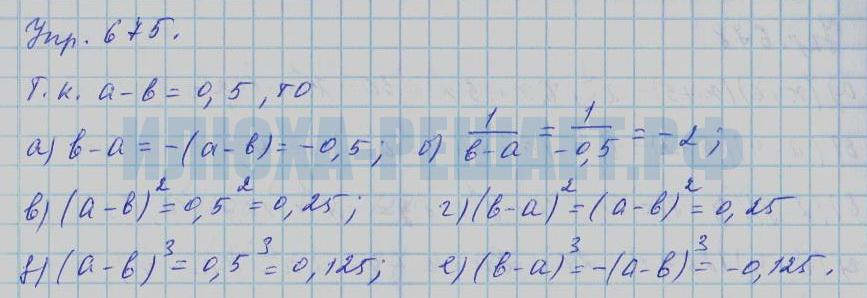 Упр. 675.
Т.к. а-в = 0,5, то
а) в-а = -(а-в) = -0,5; б) 1/(в-а) = 1/(-0,5) = -2;
ИЛЮХА-РЕШАЕТ.РФ
в) (а-в)² = 0,5² = 0,25; г) (в-а)² = (а-в)² = 0,25
д) (а-в)³ = 0,5³ = 0,125; е) (в-а)³ = -(а-в)³ = -0,125.